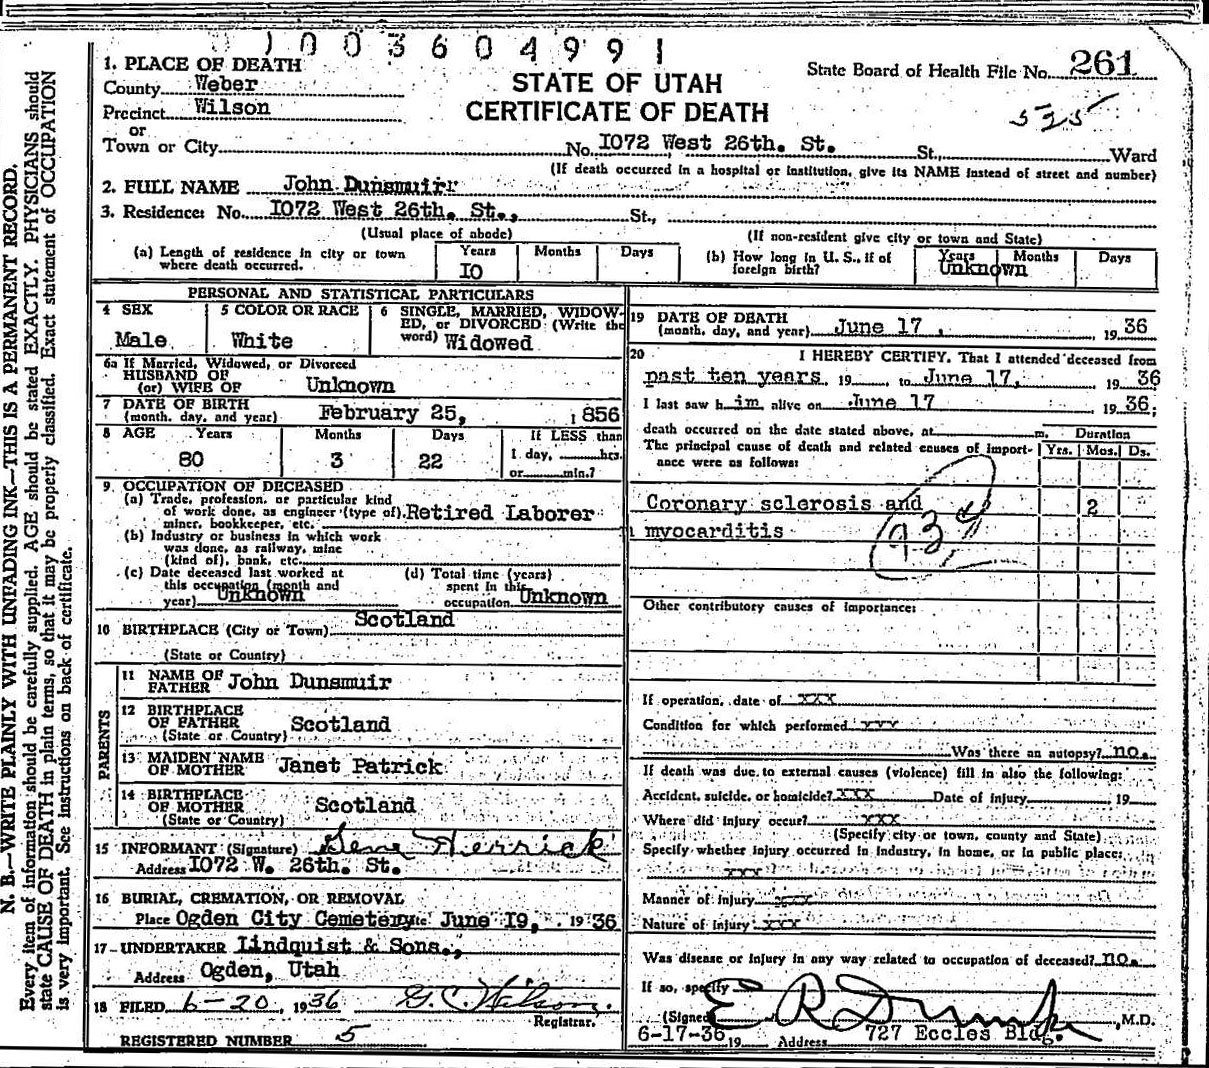 1003604991
1. PLACE OF DEATH
County Weber
Precinct Wilson
or
Town or City No. I072 West 26th. St. St., Ward
STATE OF UTAH
CERTIFICATE OF DEATH
State Board of Health File No. 261
525
(If death occurred in a hospital or institution, give its NAME instead of street and number)
2. FULL NAME John Dunsmuirr
3. Residence: No. I072 West 26th. St., St.,
(Usual place of abode) (If non-resident give city or town and State)
(a) Length of residence in city or town where death occurred. Years I0 Months Days
(b) How long in U. S., if of foreign birth? Years Unknown Months Days
PERSONAL AND STATISTICAL PARTICULARS
4 SEX Male
5 COLOR OR RACE White
6 SINGLE, MARRIED, WIDOW-
ED, or DIVORCED (Write the
word) Widowed
6a If Married, Widowed, or Divorced
HUSBAND OF
(or) WIFE OF Unknown
7 DATE OF BIRTH
(month, day, and year) February 25, 1856
8 AGE Years Months Days If LESS than
80 3 22 1 day, hrs.
or min.?
9. OCCUPATION OF DECEASED
(a) Trade, profession, or particular kind
of work done, as engineer (type of), Retired Laborer
miner, bookkeeper, etc.
(b) Industry or business in which work
was done, as railway, mine
(kind of), bank, etc.
(c) Date deceased last worked at
this occupation (month and
year) Unknown
(d) Total time (years)
spent in this
occupation Unknown
10 BIRTHPLACE (City or Town) Scotland
(State or Country)
PARENTS
11 NAME OF
FATHER John Dunsmuir
12 BIRTHPLACE
OF FATHER Scotland
(State or Country)
13 MAIDEN NAME
OF MOTHER Janet Patrick
14 BIRTHPLACE
OF MOTHER Scotland
(State or Country)
15 INFORMANT (Signature) Gene Herrick
Address I072 W. 26th. St.
16 BURIAL, CREMATION, OR REMOVAL
Place Ogden City Cemetery June I9, 1936
17 UNDERTAKER Lindquist & Sons.,
Address Ogden, Utah
18 FILED 6-20, 1936 G. C. Wilson.
Registrar.
REGISTERED NUMBER 5
19 DATE OF DEATH
(month, day, and year) June 17, 1936
20 I HEREBY CERTIFY, That I attended deceased from
past ten years, 19 , to June 17, 1936
I last saw h im alive on June 17 1936;
death occurred on the date stated above, at m. Duration
The principal cause of death and related causes of import-
ance were as follows: Yrs. Mos. Ds.
Coronary sclerosis and 2
myocarditis
Other contributory causes of importance:
If operation, date of xxx
Condition for which performed xxx
Was there an autopsy? no.
If death was due to external causes (violence) fill in also the following:
Accident, suicide, or homicide? xxx Date of injury 19
Where did injury occur? xxx
(Specify city or town, county and State)
Specify whether injury occurred in industry, in home, or in public place:
xxx
Manner of injury xxx
Nature of injury xxx
Was disease or injury in any way related to occupation of deceased? no.
If so, specify
(Signed) E R Dumke, M.D.
6-17-36 19 Address 727 Eccles Bldg.
N. B.—WRITE PLAINLY WITH UNFADING INK—THIS IS A PERMANENT RECORD.
Every item of information should be carefully supplied. AGE should be stated EXACTLY. PHYSICIANS should
state CAUSE OF DEATH in plain terms, so that it may be properly classified. Exact statement of OCCUPATION
is very important. See instructions on back of certificate.